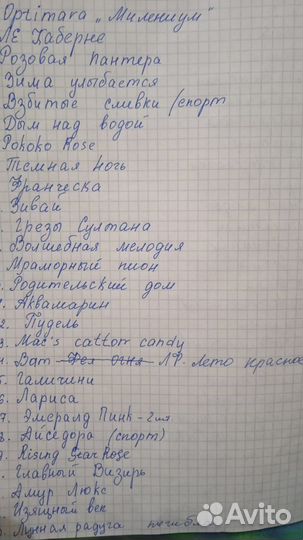 Optimara „Милениум"
ЛЕ Каберне
Розовая пантера
Зима улыбается
Взбитые сливки (спорт
Дым над водой
Rokoko Rose
Темная ночь
Франческа
Зивай
Грезы Султана
Волшебная мелодия
Мраморный пион
Родительский дом
1. Аквамарин
2. Пудель
3. Mac's catton candy
4. Ват Фея огня ЛР. Лето красное
5. Галичини
6. Лариса
7. Эмеральд Пинк - 2 шт
8. Айседора (спорт)
9. Rising Star Rose
Главный Визирь
Амур Люкс
Изящный век
Лунная радуга погиб
Avito